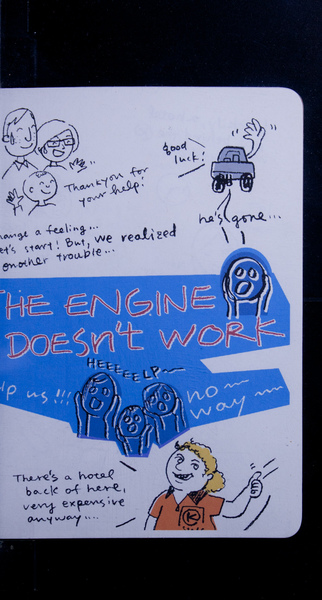 good
luck!
Thankyou for
your help!
he's gone...
hange a feeling...
et's start! But, we realized
another trouble...
HE ENGINE
DOESN'T WORK
HEEEEELP
lp us!!!
no
way
There's a hotel
back of here,
very expensive
anyway....
K